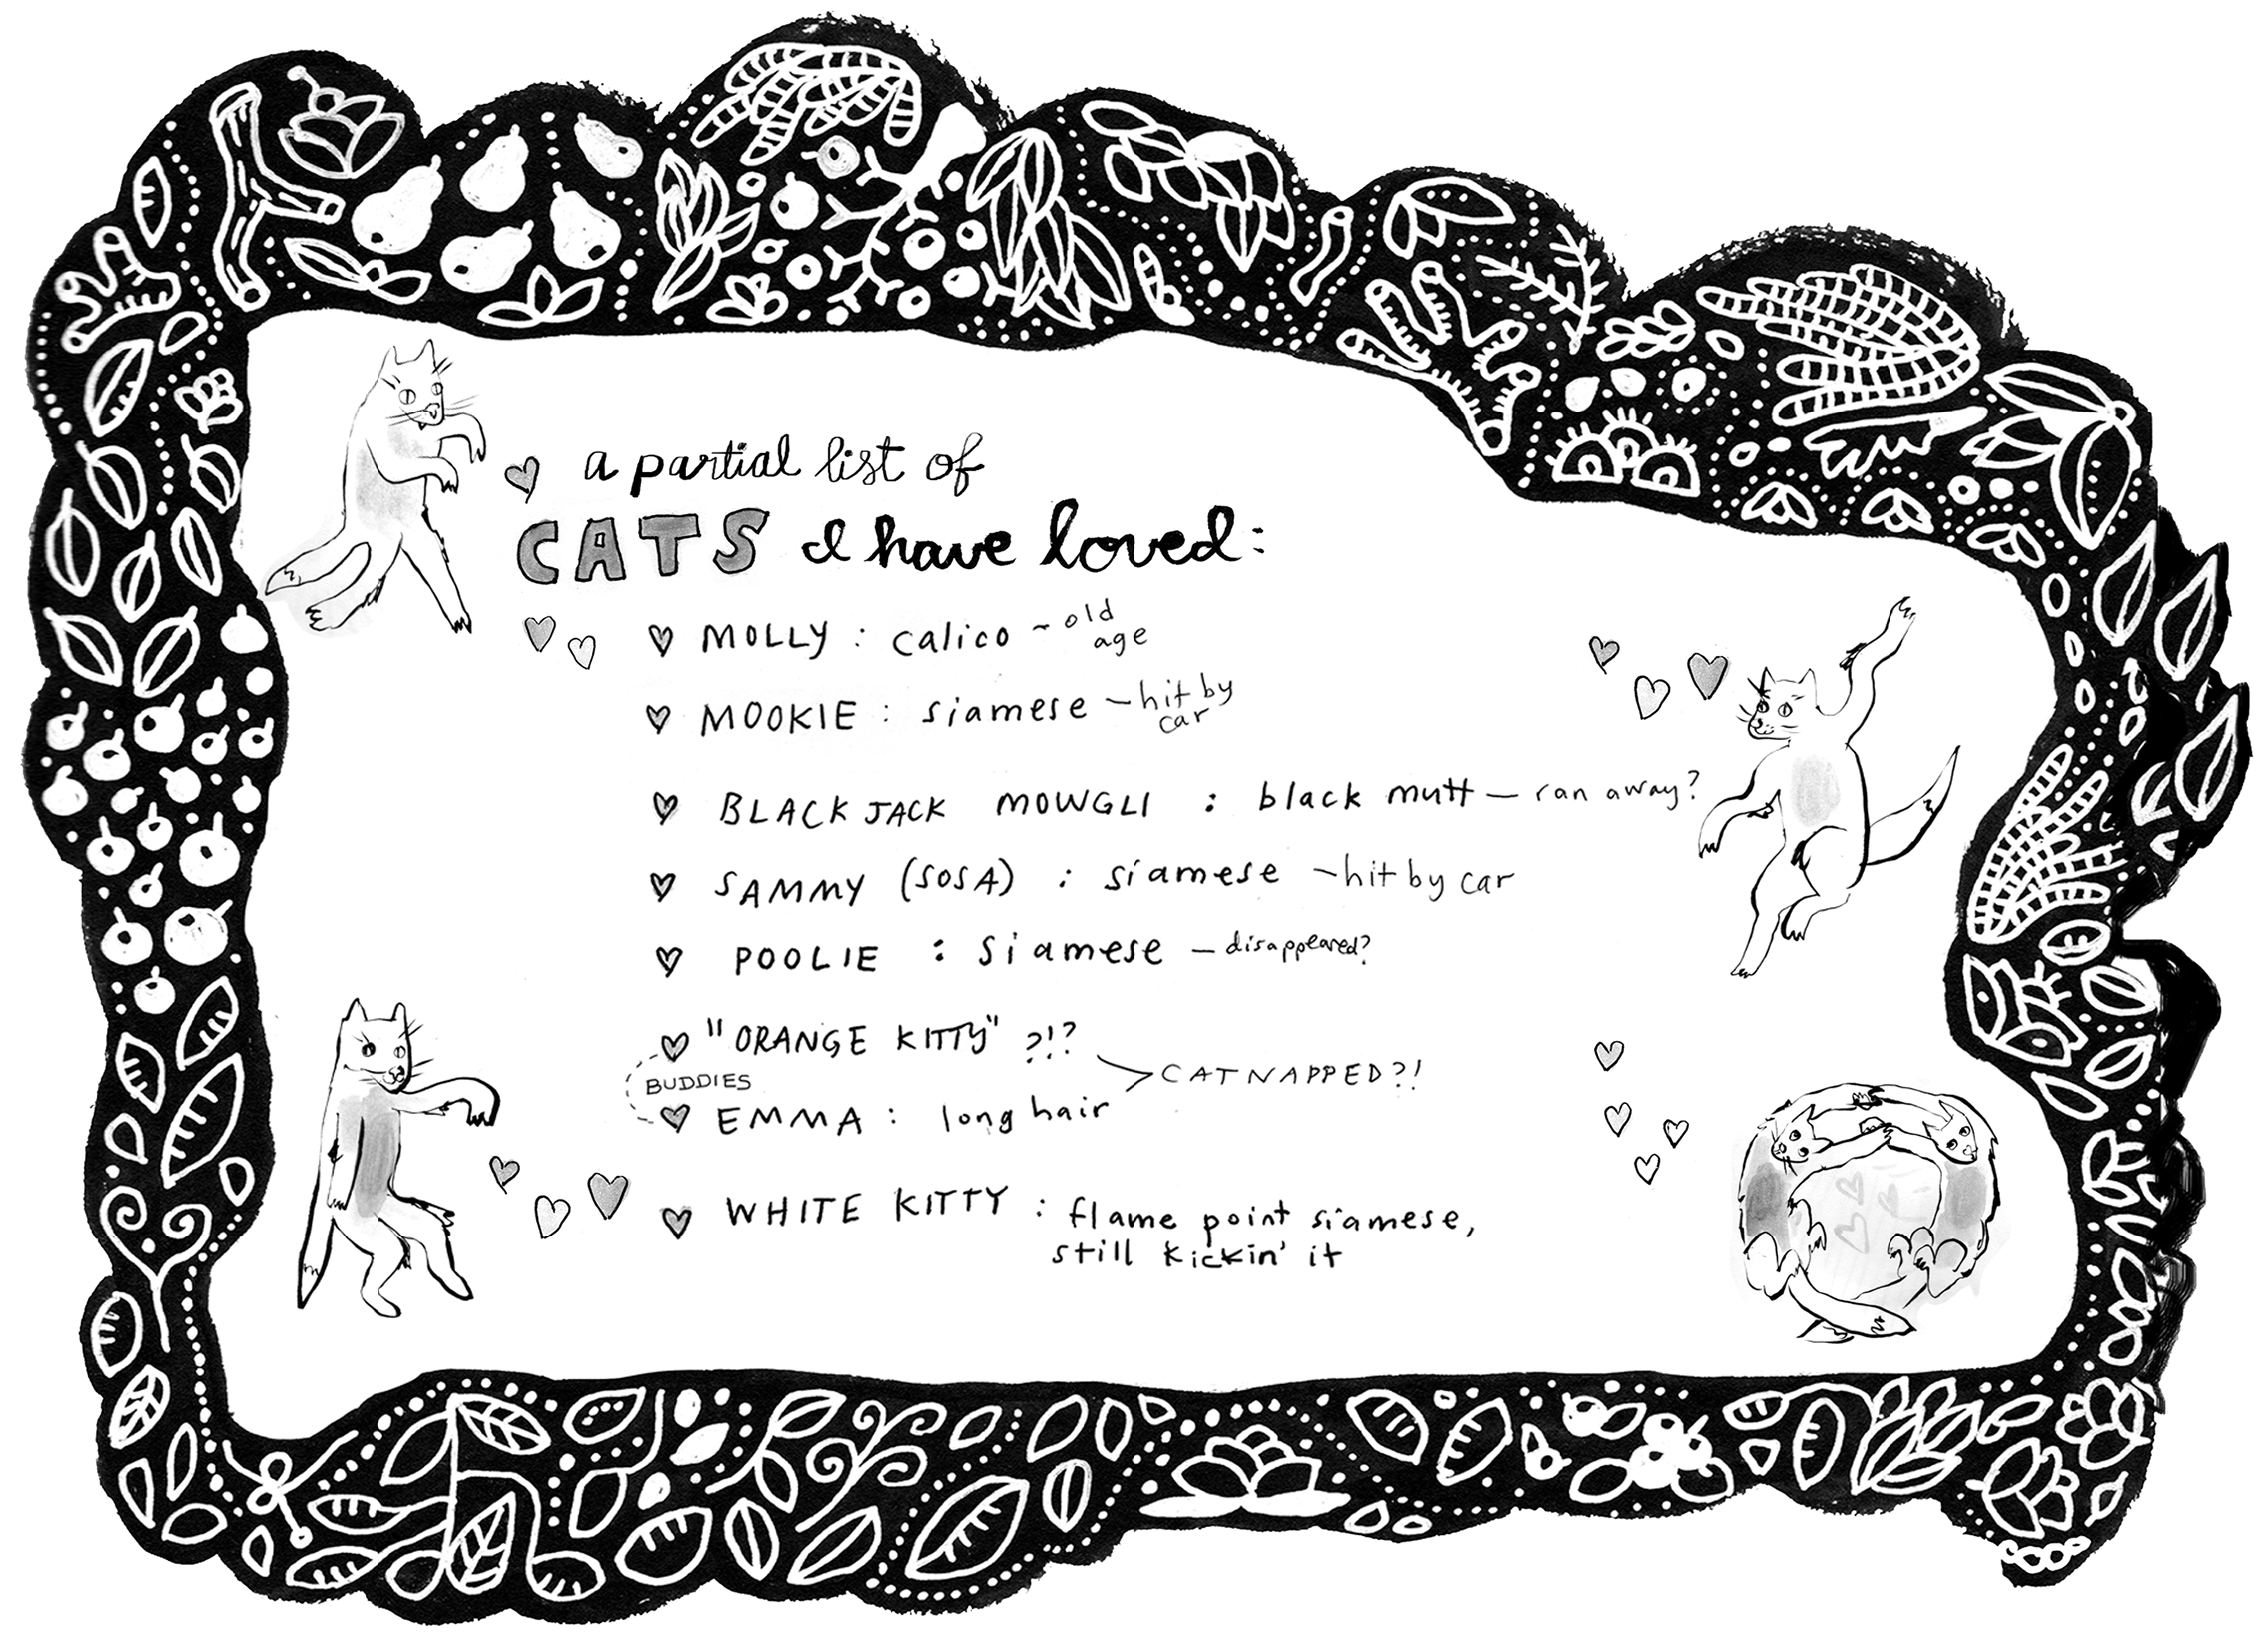 a partial list of
CATS I have loved:
MOLLY : calico ~ old
age
MOOKIE : siamese — hit by
car
BLACK JACK MOWGLI : black mutt — ran away?
SAMMY (SOSA) : siamese ~ hit by car
POOLIE : siamese — disappeared?
"ORANGE KITTY" ?!?
CATNAPPED?!
BUDDIES
EMMA : long hair
WHITE KITTY : flame point siamese,
still kickin' it